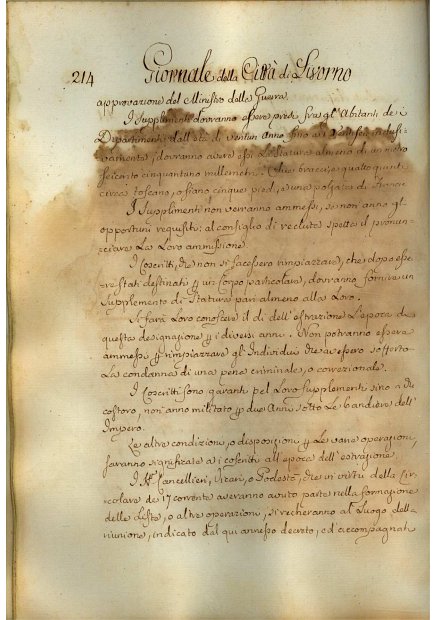 214 Giornale della Città di Livorno
approvazione del Ministro della Guerra.
I Supplimenti dovranno essere presi fra gl'Abitanti dei
Dipartimenti dall'età di ventun anno fino a i
dovranno avere essi la statura almeno di un metro
seicento cinquantuno millemetri. (due braccia, e quattro quinti
circa toscano, ossiano cinque piedi, e una polgata di Francia
I Supplimenti non verranno ammessi, se non anno gl'
opportuni requisiti: al consiglio di reclute spetta il pronun-
ziare la loro ammissione.
I Coscritti, che non si facessero rimpiazzare, che dopo esse-
re stati destinati p un Corpo particolare, dovranno fornire un
Supplemento di Statura pari almeno alla loro.
Si farà loro conoscere il dì dell'estrazione l'epoca di
questa designazione p i diversi anni. Non potranno essere
ammessi p rimpiazzare gl'Individui che avessero sofferto
la condanna di una pena criminale, o correzionale.
I Coscritti sono garanti pel loro supplementi sino a che
costoro, non anno militato p due Anni sotto le bandiere dell'
Impero.
Le altre condizioni, o disposizioni p le varie operazioni,
saranno significate a i coscritti all'epoca dell'estrazione.
I Cancellieri, Vicari, o Podestà, che in virtù della Cir-
colare de 17 corrente averanno avuto parte nella formazione
delle liste, o altre operazioni, si recheranno al Luogo della
riunione, indicato dal qui annesso decreto, ed accompagnati